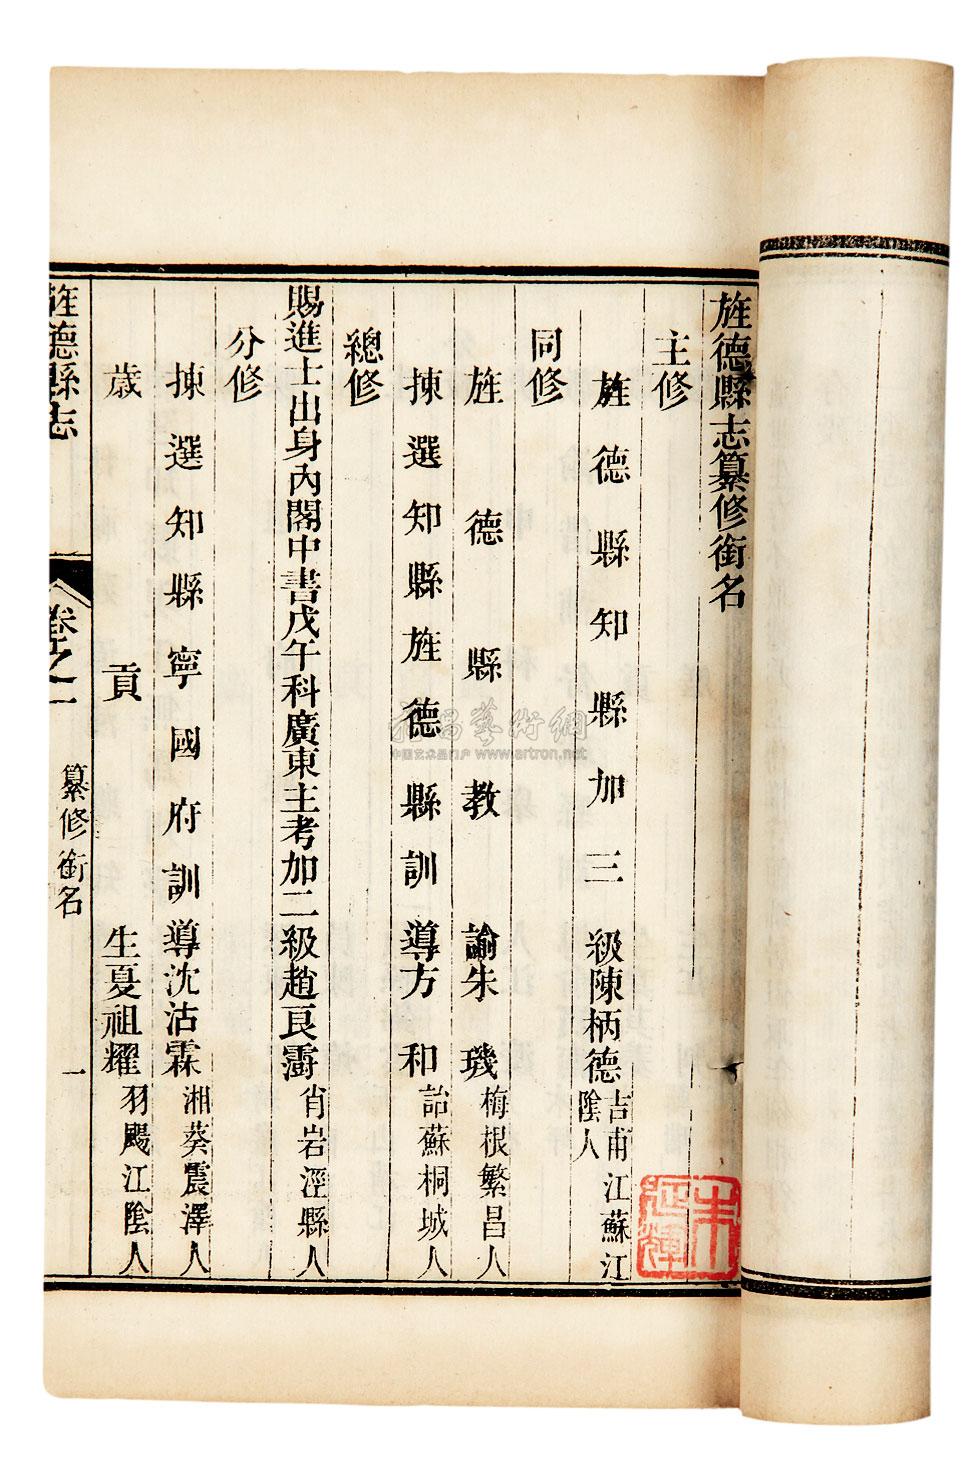 旌德縣志纂修銜名
主修
旌德縣知縣加三級陳柄德吉甫江蘇江陰人
同修
旌德縣教諭朱璣梅根繁昌人
揀選知縣旌德縣訓導方和詒蘇桐城人
總修
賜進士出身內閣中書戊午科廣東主考加二級趙良澍肖岩涇縣人
分修
揀選知縣寧國府訓導沈沾霖湘葵震澤人
歲貢生夏祖耀羽颺江陰人
旌德縣志
卷之一
纂修銜名
一
中国艺术品门户 www.artron.net